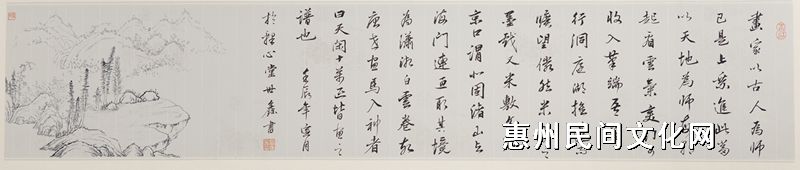 畫家以古人為師
已是上乘進此當
以天地為師
起看雲氣變
收入筆端吾
行洞庭湖推
曠望儼然米
墨戲又米敷
京口謂北固諸山
海門連亘取其境
為瀟湘白雲卷故
唐世畫馬入神者
曰天閑十萬匹皆畫之
譜也 壬辰年 月
於 心堂世鑫書
惠州民间文化网